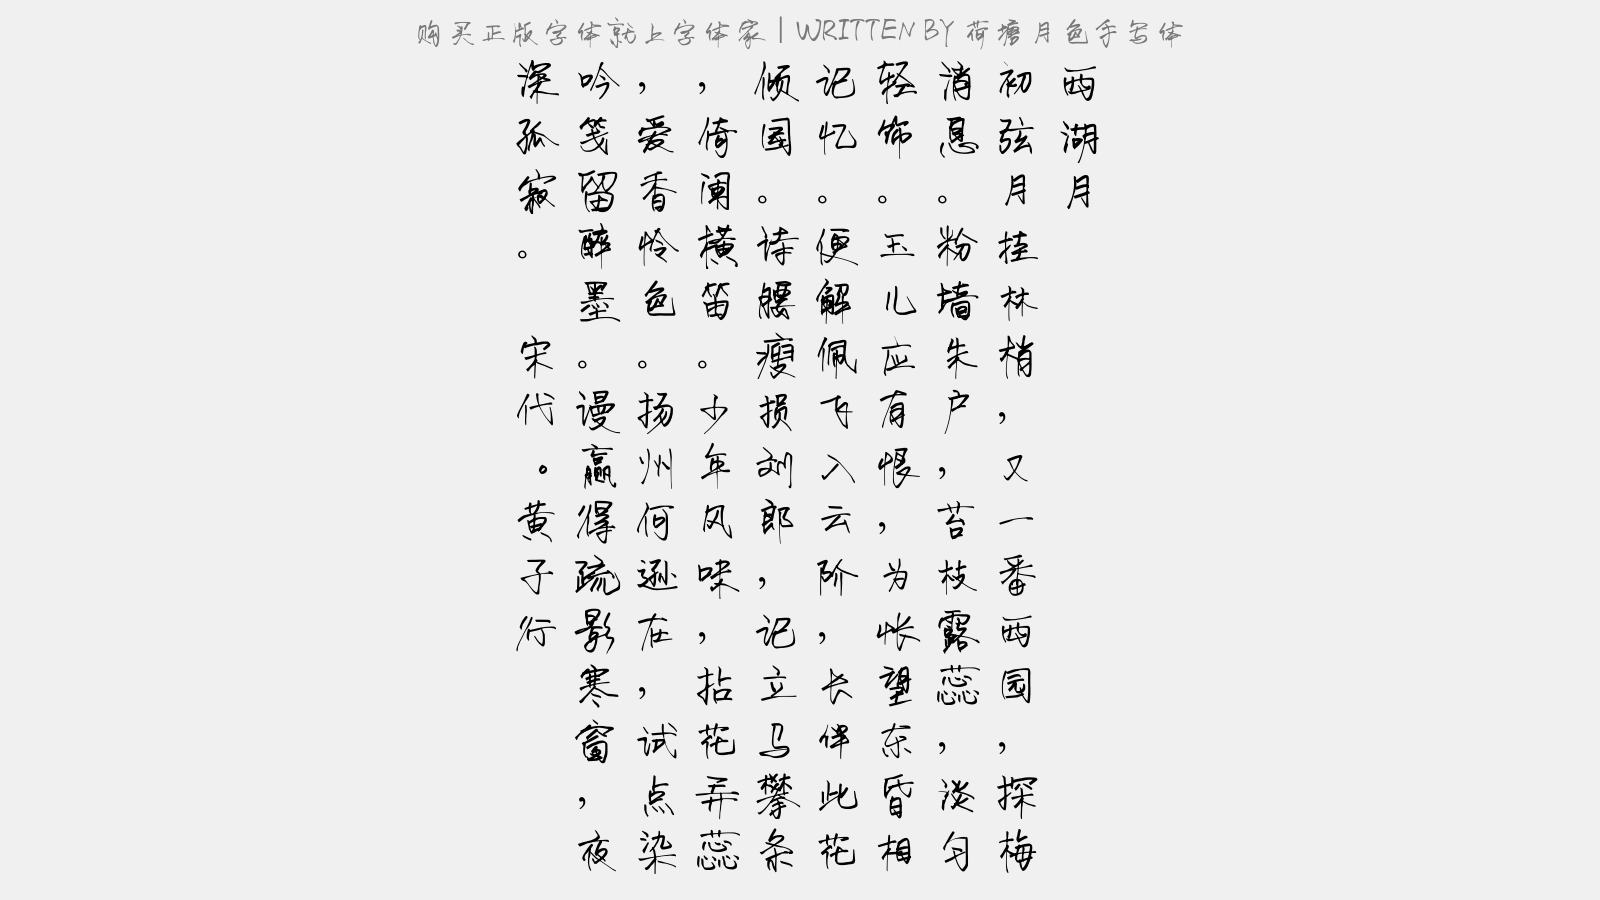 购买正版字体就上字体家 | WRITTEN BY 荷塘月色手写体
西湖月
初弦月挂林梢，又一番西园，探梅
消息。粉墙朱户，苔枝露蕊，淡匀
轻饰。玉儿应有恨，为怅望东昏相
记忆。便解佩飞入云阶，长伴此花
倾国。诗腰瘦损刘郎，记立马攀条
，倚阑横笛。少年风味，拈花弄蕊
，爱香怜色。扬州何逊在，试点染
吟笺留醉墨。谩赢得疏影寒窗，夜
深孤寂。 宋代。黄子行